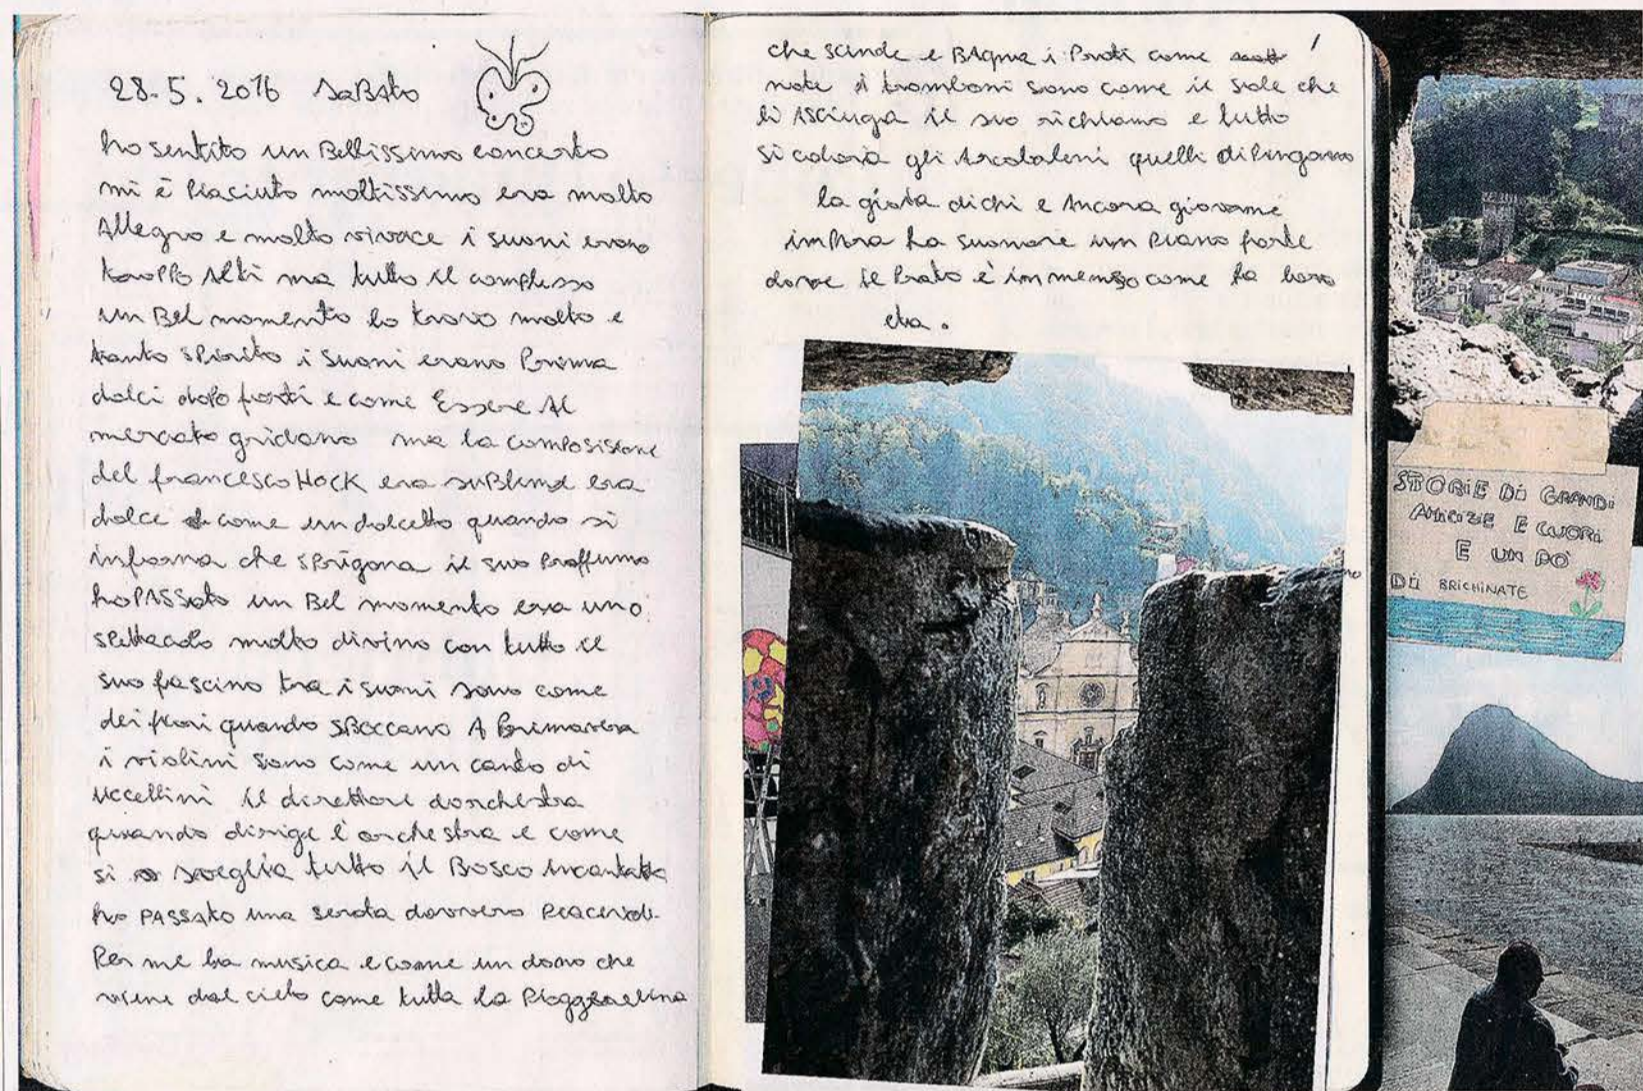 28.5.2016 SaBAto
ho sentito un Bellissimo concerto
mi è Piaciuto moltissimo era molto
Allegro e molto vivace i suoni erano
troPPo Alti ma tutto il complesso
un Bel momento lo trovo molto e
tanto sPirito i suoni erano Prima
dolci doPo forti e come Essere Al
mercato gridano ma la comPosisione
del francesco HOCK era suBlime era
dolce come un dolcetto quando si
inforna che sPrigona il suo Proffumo
ho PASSato un Bel momento era uno
sPettacolo molto divino con tutto il
suo fascino tra i suoni sono come
dei fiori quando sBoccano A Primavera
i violini sono come un canto di
uccellini il direttore dorchestra
quando dirige l'orchestra e come
si sveglia tutto il Bosco incantato
ho PASSATO una serata davvero
Per me la musica e come un dono che
viene dal cielo come tutta la
che scinde e BAgna i Prati come
note i tromboni sono come il sole che
li ASCiuga il suo richiamo e tutto
si colora gli Arcobaleni quelli dipingono
la gioia di chi e Ancora giovane
imPara ha suonare un Piano forte
dove il Prato è immenso come la loro
eta.
STORIE Di GRANDi
AMICIZIE E CUORI
E UN PO'
Di BRICHINATE